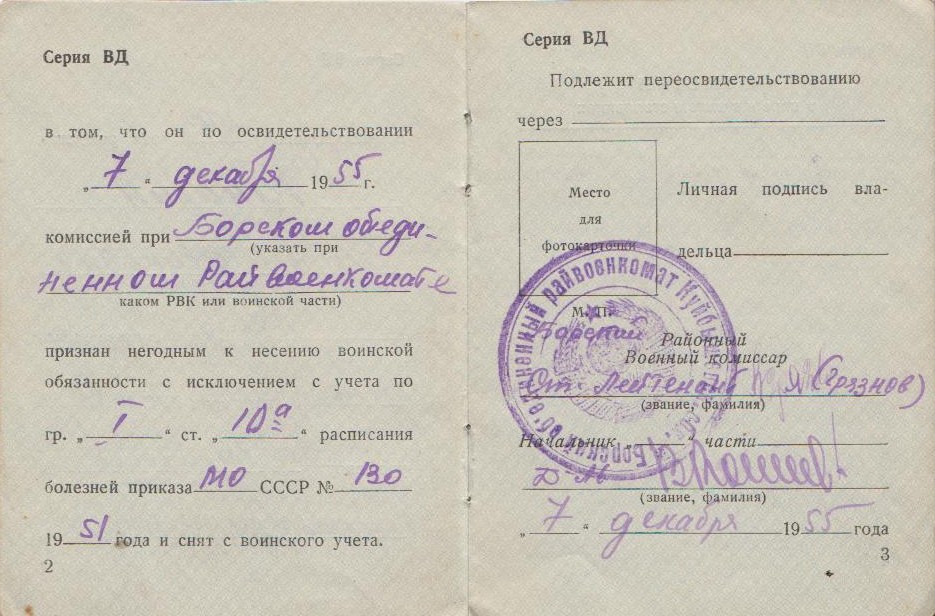 Серия ВД
в том, что он по освидетельствовании
„7“ декабря 1955 г.
комиссией при Борском объеди-
(указать при
ненном Райвоенкомате
каком РВК или воинской части)
признан негодным к несению воинской
обязанности с исключением с учета по
гр. „I“ ст. „10а“ расписания
болезней приказа МО СССР № 130
1951 года и снят с воинского учета.
2
Серия ВД
Подлежит переосвидетельствованию
через
Место
для
фотокарточки
Личная подпись вла-
дельца
М. П.
Борский объединенный райвоенкомат
Борский Районный
Военный комиссар
Лейтенант (Грязнов)
(звание, фамилия)
Начальник „ “ части
(звание, фамилия)
„7“ декабря 1955 года
3